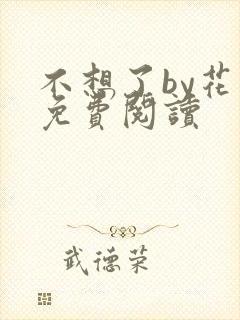 不想了by花
免費閱讀
武德荣